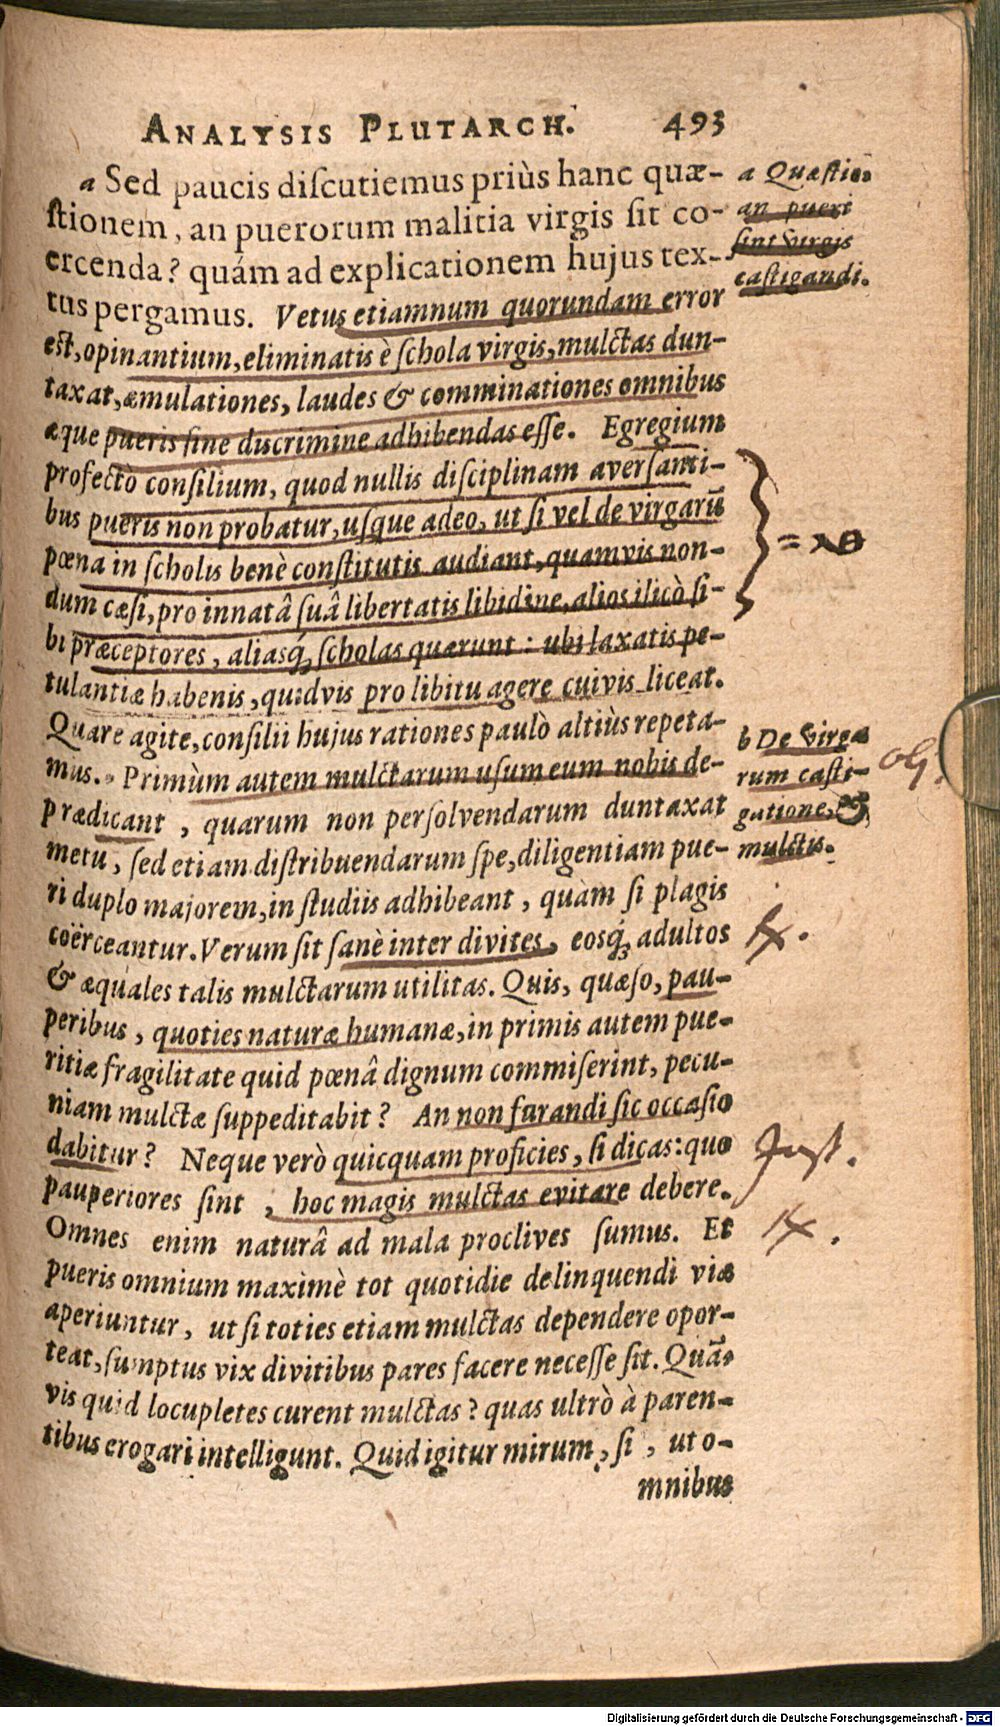 ANALYSIS PLUTARCH. 493
a Sed paucis diſcutiemus priùs hanc quæ-
ſtionem, an puerorum malitia virgis ſit co-
ercenda? quám ad explicationem hujus tex-
tus pergamus. Vetus etiamnum quorundam error
eſt, opinantium, eliminatis è ſchola virgis, mulctas dun-
taxat, æmulationes, laudes & comminationes omnibus
æque pueris ſine diſcrimine adhibendas eſſe. Egregium
profectò conſilium, quod nullis diſciplinam averſanti-
bus pueris non probatur, uſque adeo, ut ſi vel de virgarū
pœna in ſcholis benè conſtitutis audiant, quamvis non-
dum cæſi, pro innatâ ſuâ libertatis libidine, alios ilicò ſi-
bi præceptores, aliasq́; ſcholas quærunt: ubi laxatis pe-
tulantiæ habenis, quidvis pro libitu agere cuivis liceat.
Quare agite, conſilii hujus rationes paulò altiùs repeta-
mus. b Primùm autem mulctarum uſum eum nobis de-
prædicant, quarum non perſolvendarum duntaxat
metu, ſed etiam diſtribuendarum ſpe, diligentiam pue-
ri duplo majorem, in ſtudiis adhibeant, quàm ſi plagis
coërceantur. Verum ſit ſanè inter divites, eosq́; adultos
& æquales talis mulctarum utilitas. Quis, quæſo, pau-
peribus, quoties naturæ humanæ, in primis autem pue-
ritiæ fragilitate quid pœnâ dignum commiſerint, pecu-
niam mulctæ ſuppeditabit? An non furandi ſic occaſio
dabitur? Neque verò quicquam proficies, ſi dicas: quo
pauperiores ſint, hoc magis mulctas evitare debere.
Omnes enim naturâ ad mala proclives ſumus. Et
pueris omnium maximè tot quotidie delinquendi viæ
aperiuntur, ut ſi toties etiam mulctas dependere opor-
teat, ſumptus vix divitibus pares facere neceſſe ſit. Quā-
vis quid locupletes curent mulctas? quas ultrò à paren-
tibus erogari intelligunt. Quid igitur mirum, ſi, ut o-
mnibus
a Quæſtio.
an pueri
ſint virgis
caſtigandi.
b De virga
rum caſti-
gatione, &
mulctis.
obj.
Inſt.
Digitalisierung gefördert durch die Deutsche Forschungsgemeinschaft - DFG